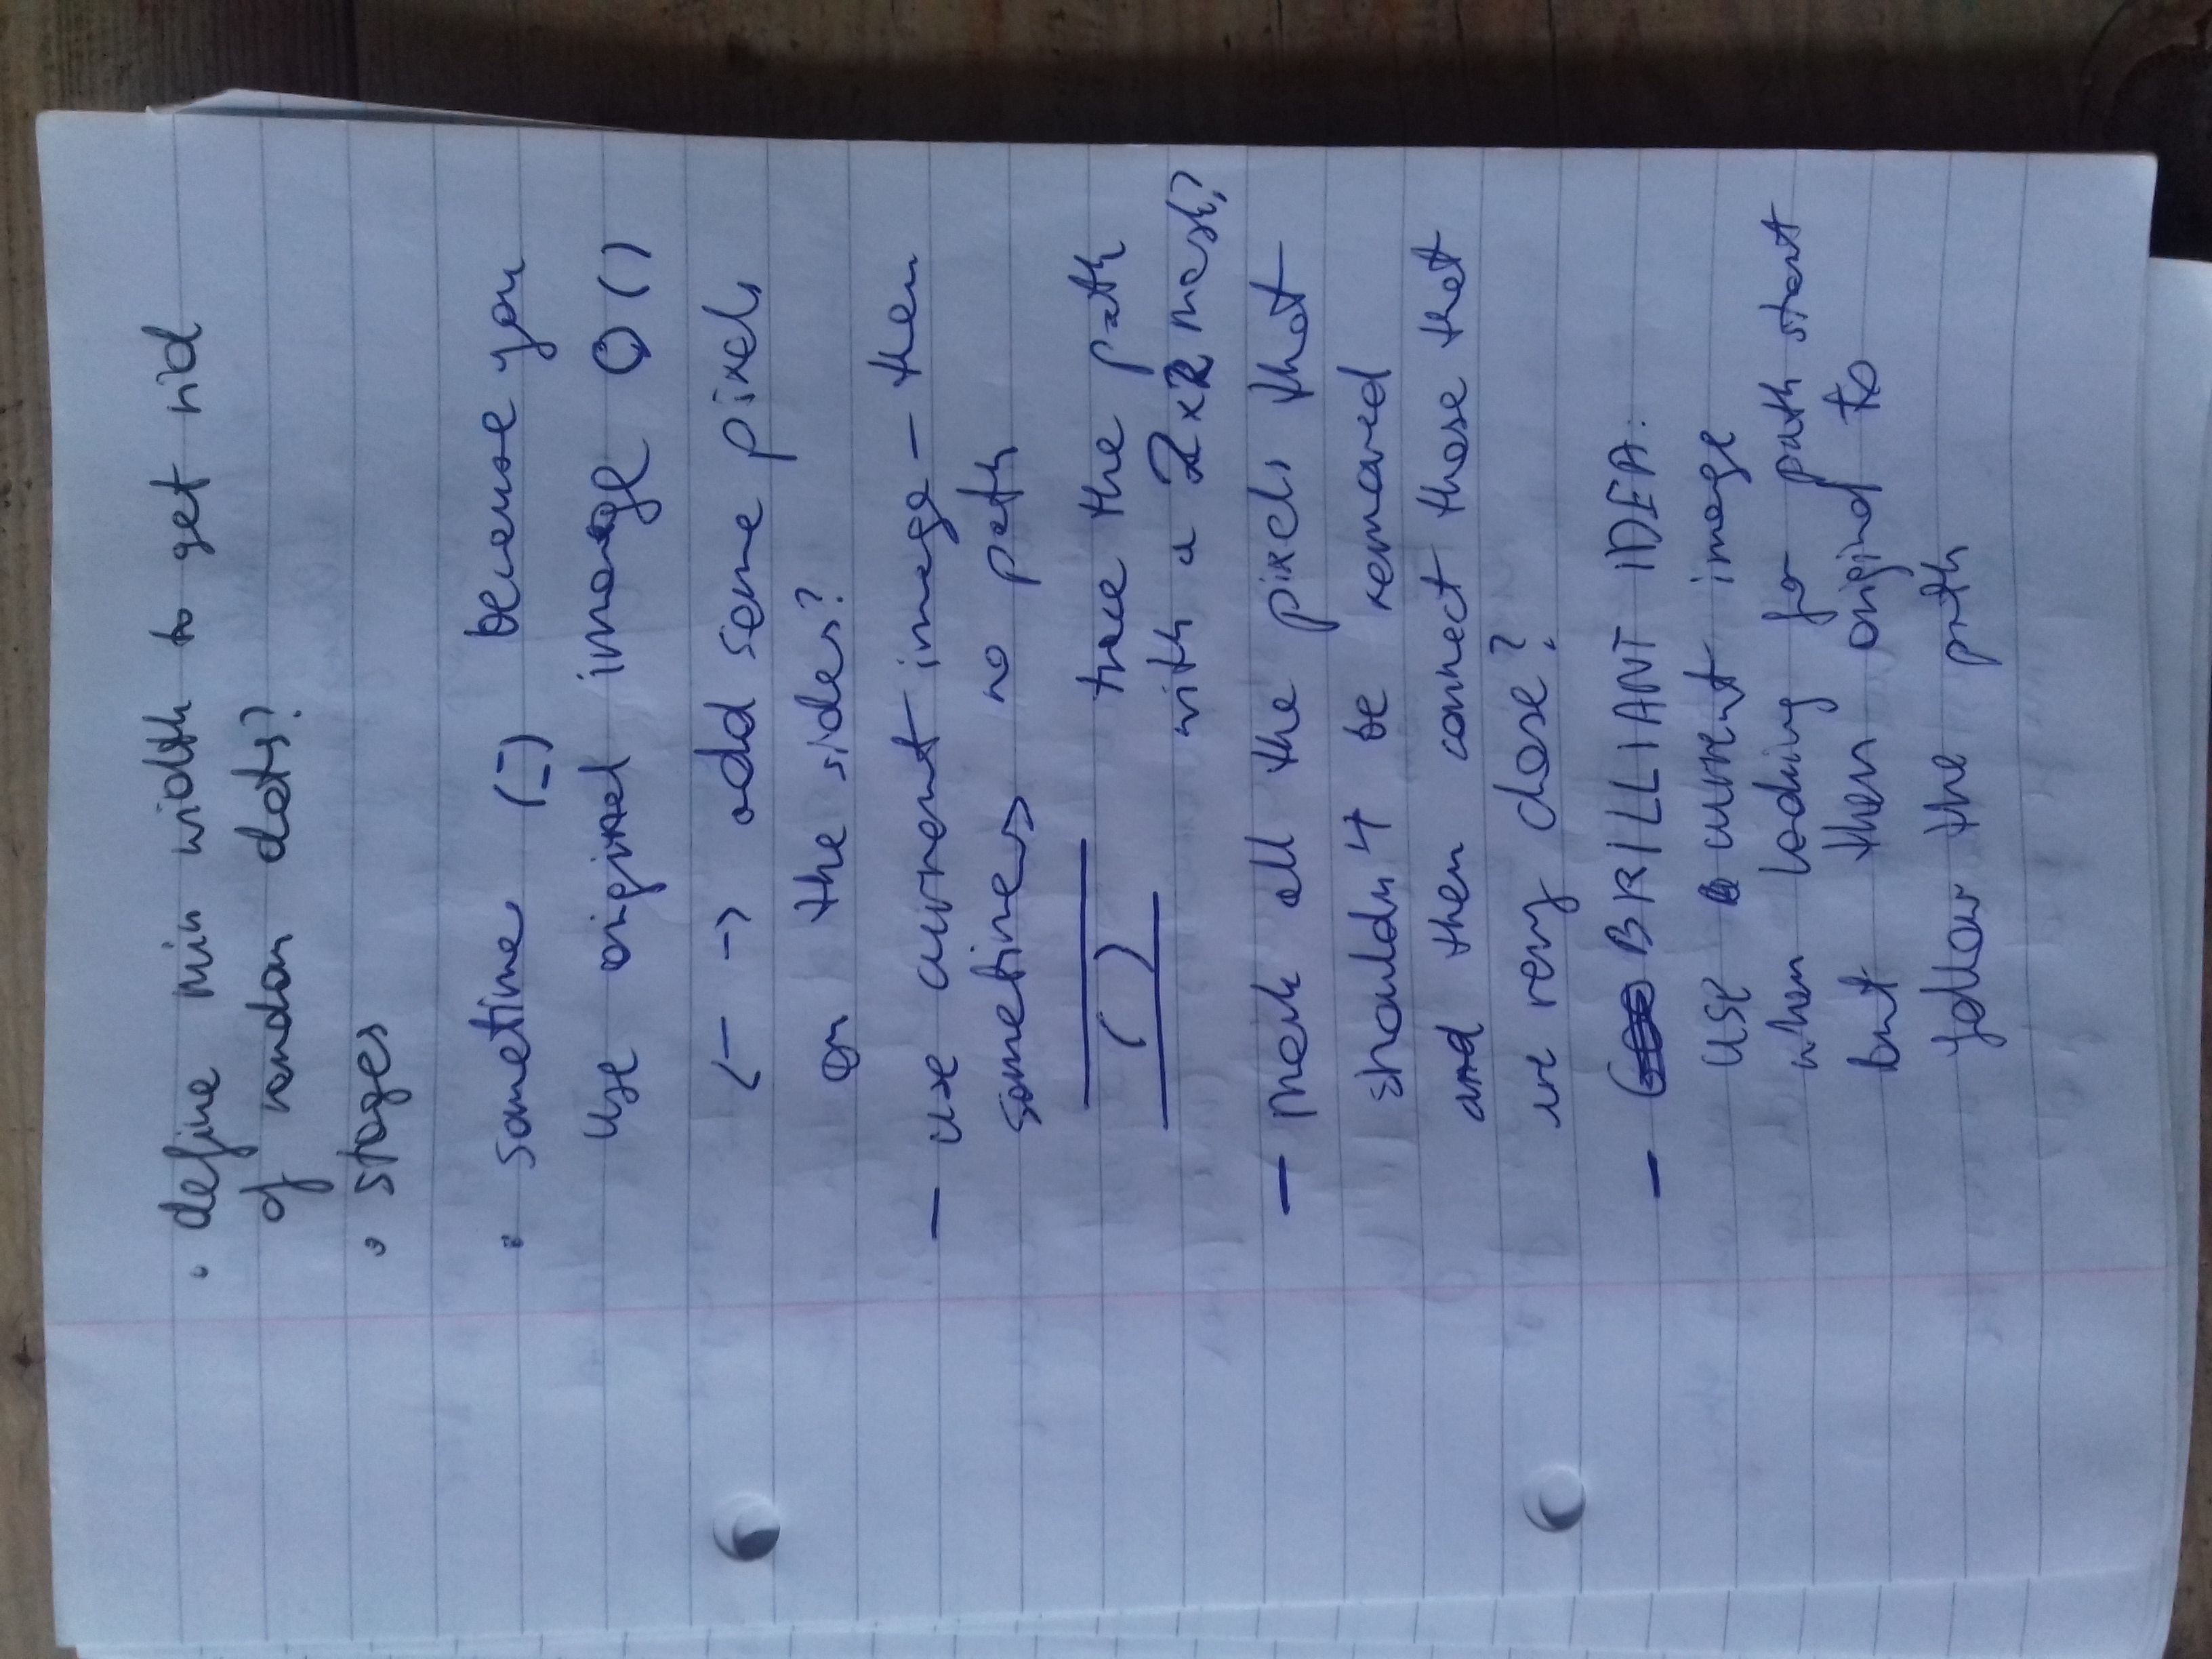 • define min width to get rid
of random dots?
• stages
• sometimes (=) because you
use original image O ()
<- -> add some pixels
on the sides?
- use current image - then
sometimes no path
( ) trace the path
with a 2x2 mask?
- mark all the pixels that
shouldn't be removed
and then connect those that
are very close?
- BRILLIANT IDEA:
use current image
when looking for path start
but then original to
follow the path